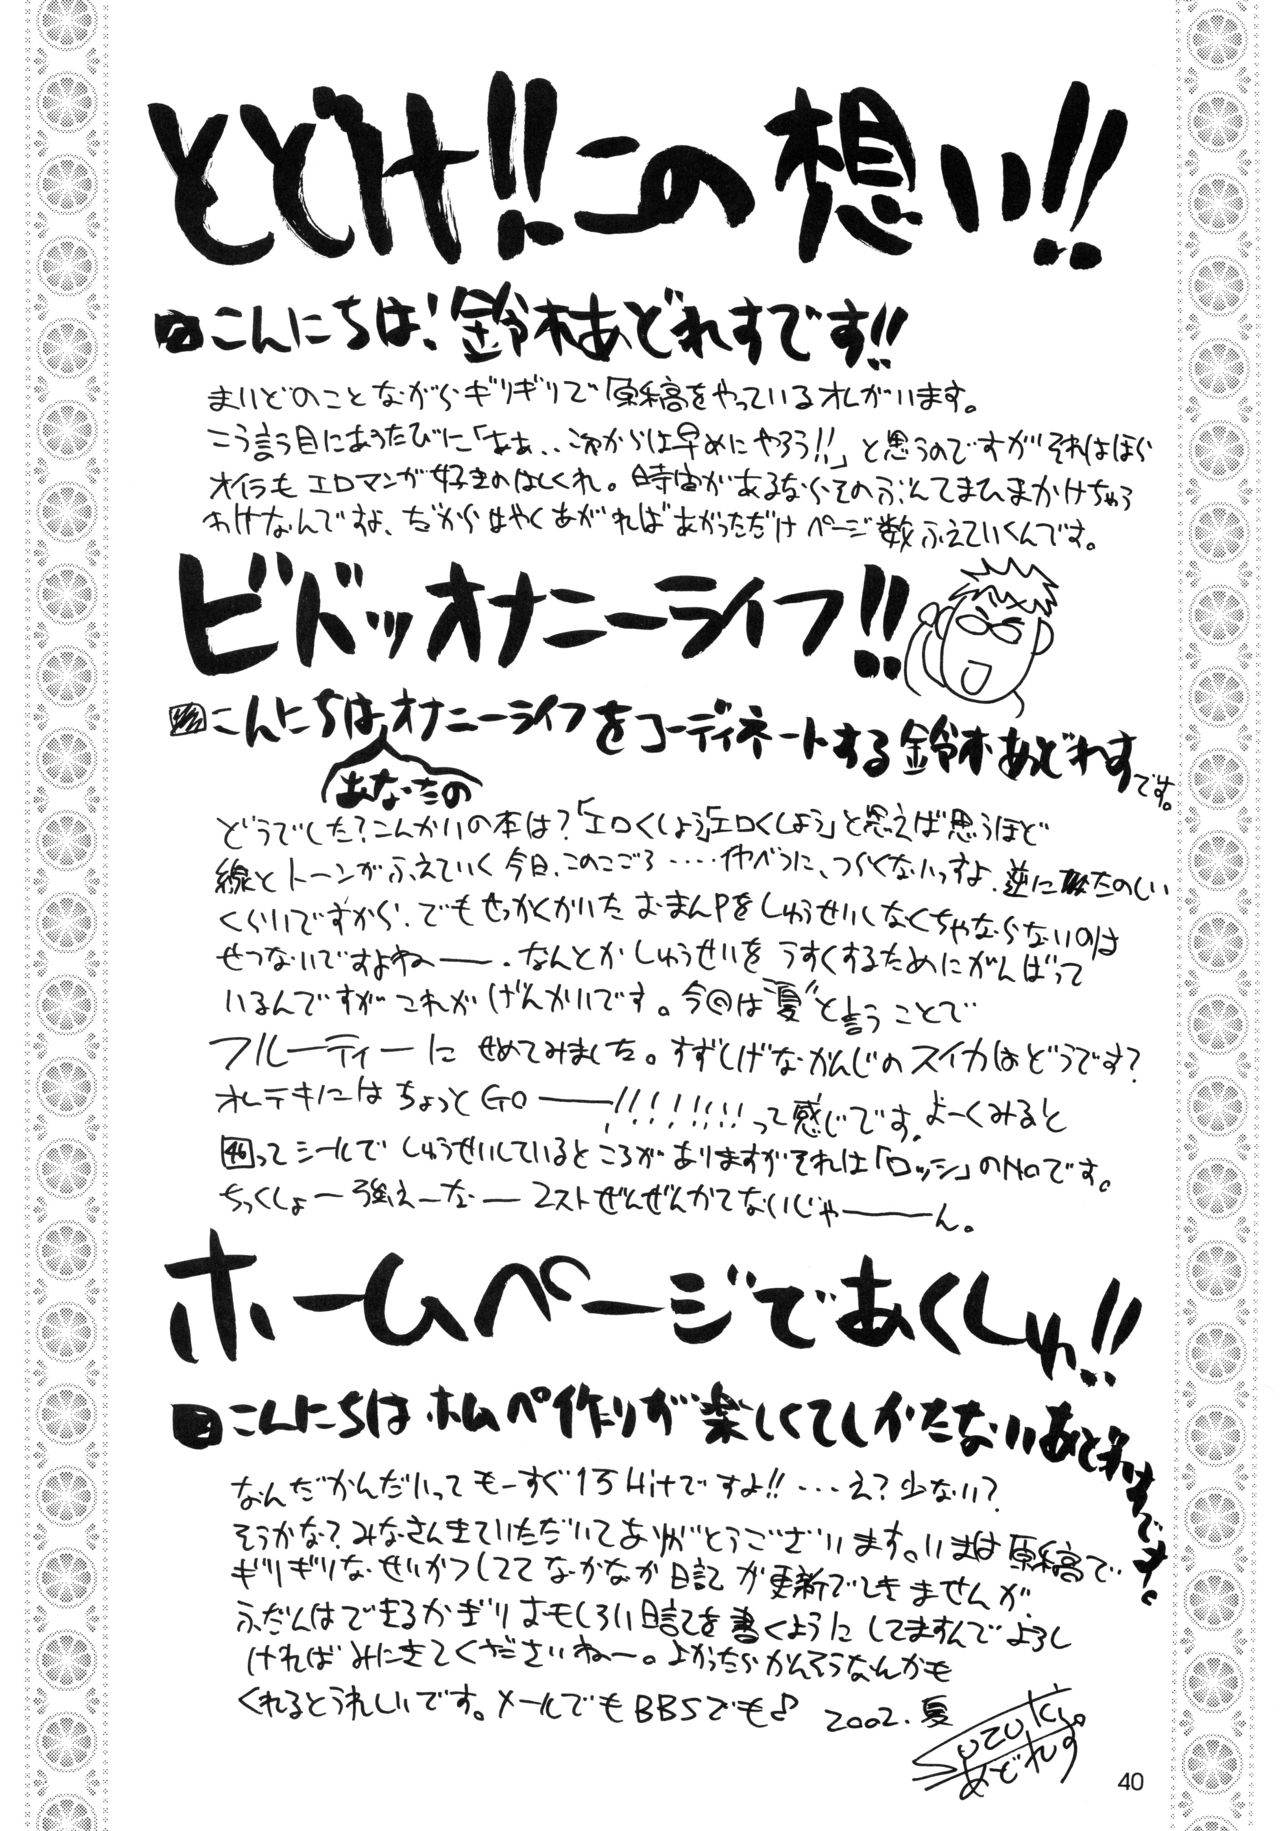 とどけ!!この想い!!
こんにちは!鈴木あどれすです!!
まいどのことながらギリギリで原稿をやっているオレがいます。
こう言う目にあうたびに「ああ..これからは早めにやろう!!」と思うのですがそれはほら
オイラもエロマンガ好きのはしくれ。時間があるならそのぶんてまひまかけちゃう
わけなんですよ、だからはやくあがればあがっただけページ数ふえていくんです。
ビバドゥオナニーライフ!!
こんにちはあなたのオナニーライフをコーディネートする鈴木あどれすです。
どうでした?こんかいの本は?「エロくしよう」「エロくしよう」と思えば思うほど
線とトーンがふえていく今日、このごろ‥‥いやべつに、つらくないっすよ、逆にたのしい
くらいですから、でもせっかくかいたおまんPをしゅうせいしなくちゃならないのは
せつないですよねー。なんとかしゅうせいをうすくするためにがんばって
いるんですがこれがげんかいです。今回は"夏"と言うことで
フルーティーにせめてみました。すずしげなかんじのスイカはどうです?
オレテキにはちょっとGO――!!!!!!!!って感じです。よーくみると
46ってシールでしゅうせいしているところがありますがそれは「ロッシ」のNoです。
ちっくしょー強えーなー2ストぜんぜんかてないじゃ――ん。
ホームページであくしゅ!!
こんにちはホムペ作りが楽しくてしかたないあどれすです。
なんだかんだいってもーすぐ1万Hitですよ!!‥‥え?少ない?
そうかな?みなさんきていただいてありがとうございます。いまは原稿で
ギリギリなせいかつしててなかなか日記が更新できませんが
ふだんはできるかぎりおもしろい日記を書くようにしてますんでよろし
ければみにきてくださいねー。よかったらかんそうなんかも
くれるとうれしいです。メールでもBBSでも♪ 2002.夏
Suzuki
あどれす
40